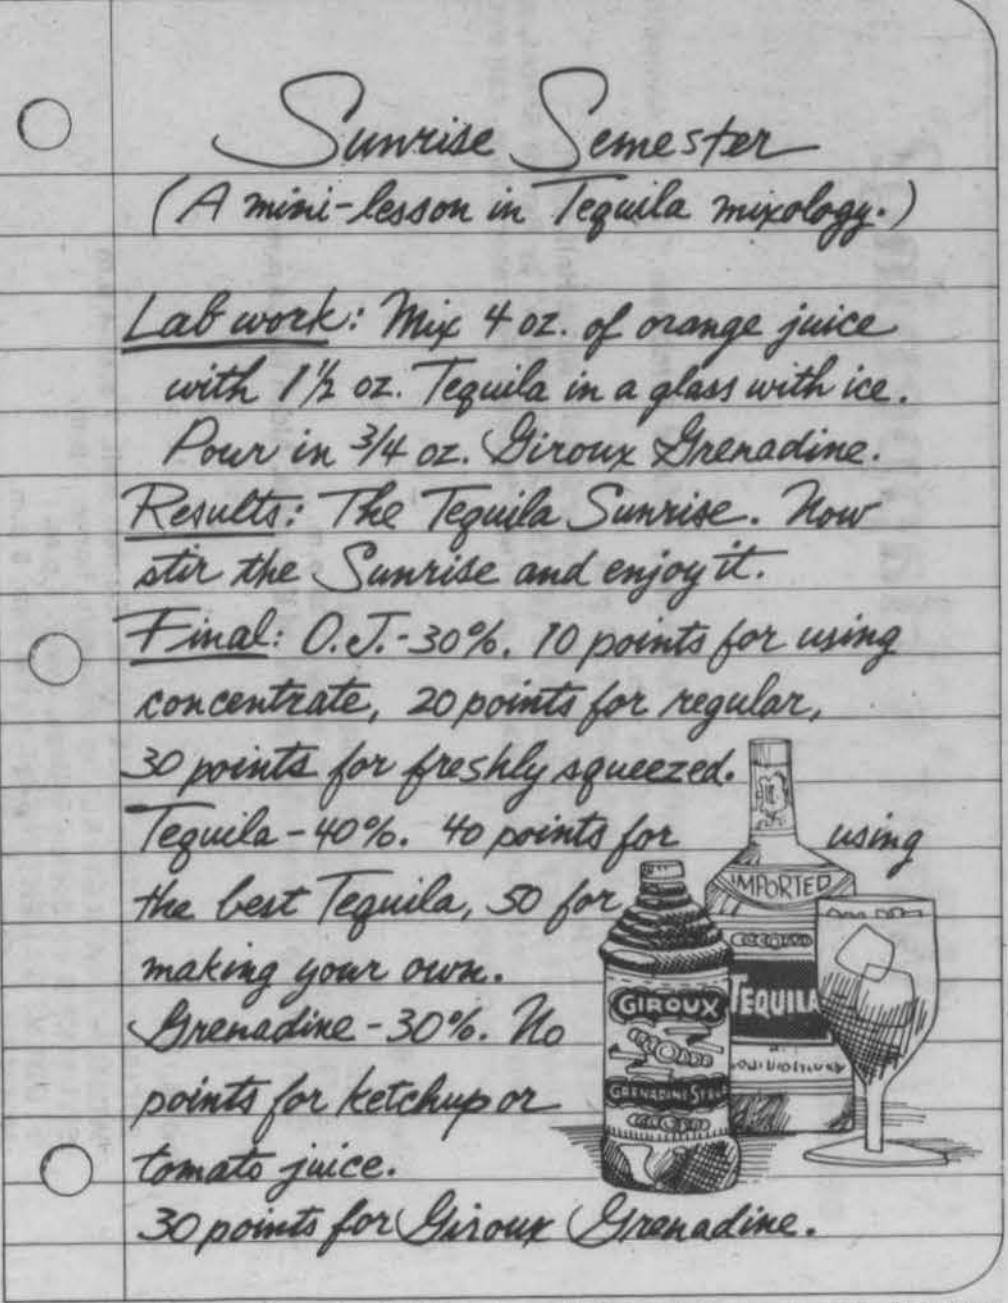 Sunrise Semester
(A mini-lesson in Tequila mixology.)
Lab work: Mix 4 oz. of orange juice
with 1½ oz. Tequila in a glass with ice.
Pour in ¾ oz. Giroux Grenadine.
Results: The Tequila Sunrise. Now
stir the Sunrise and enjoy it.
Final: O.J.-30%. 10 points for using
concentrate, 20 points for regular,
30 points for freshly squeezed.
Tequila-40%. 40 points for using
the best Tequila, 50 for
making your own.
Grenadine-30%. No
points for ketchup or
tomato juice.
30 points for Giroux Grenadine.
IMPORTED
TEQUILA
GIROUX
GRENADINE STYLE